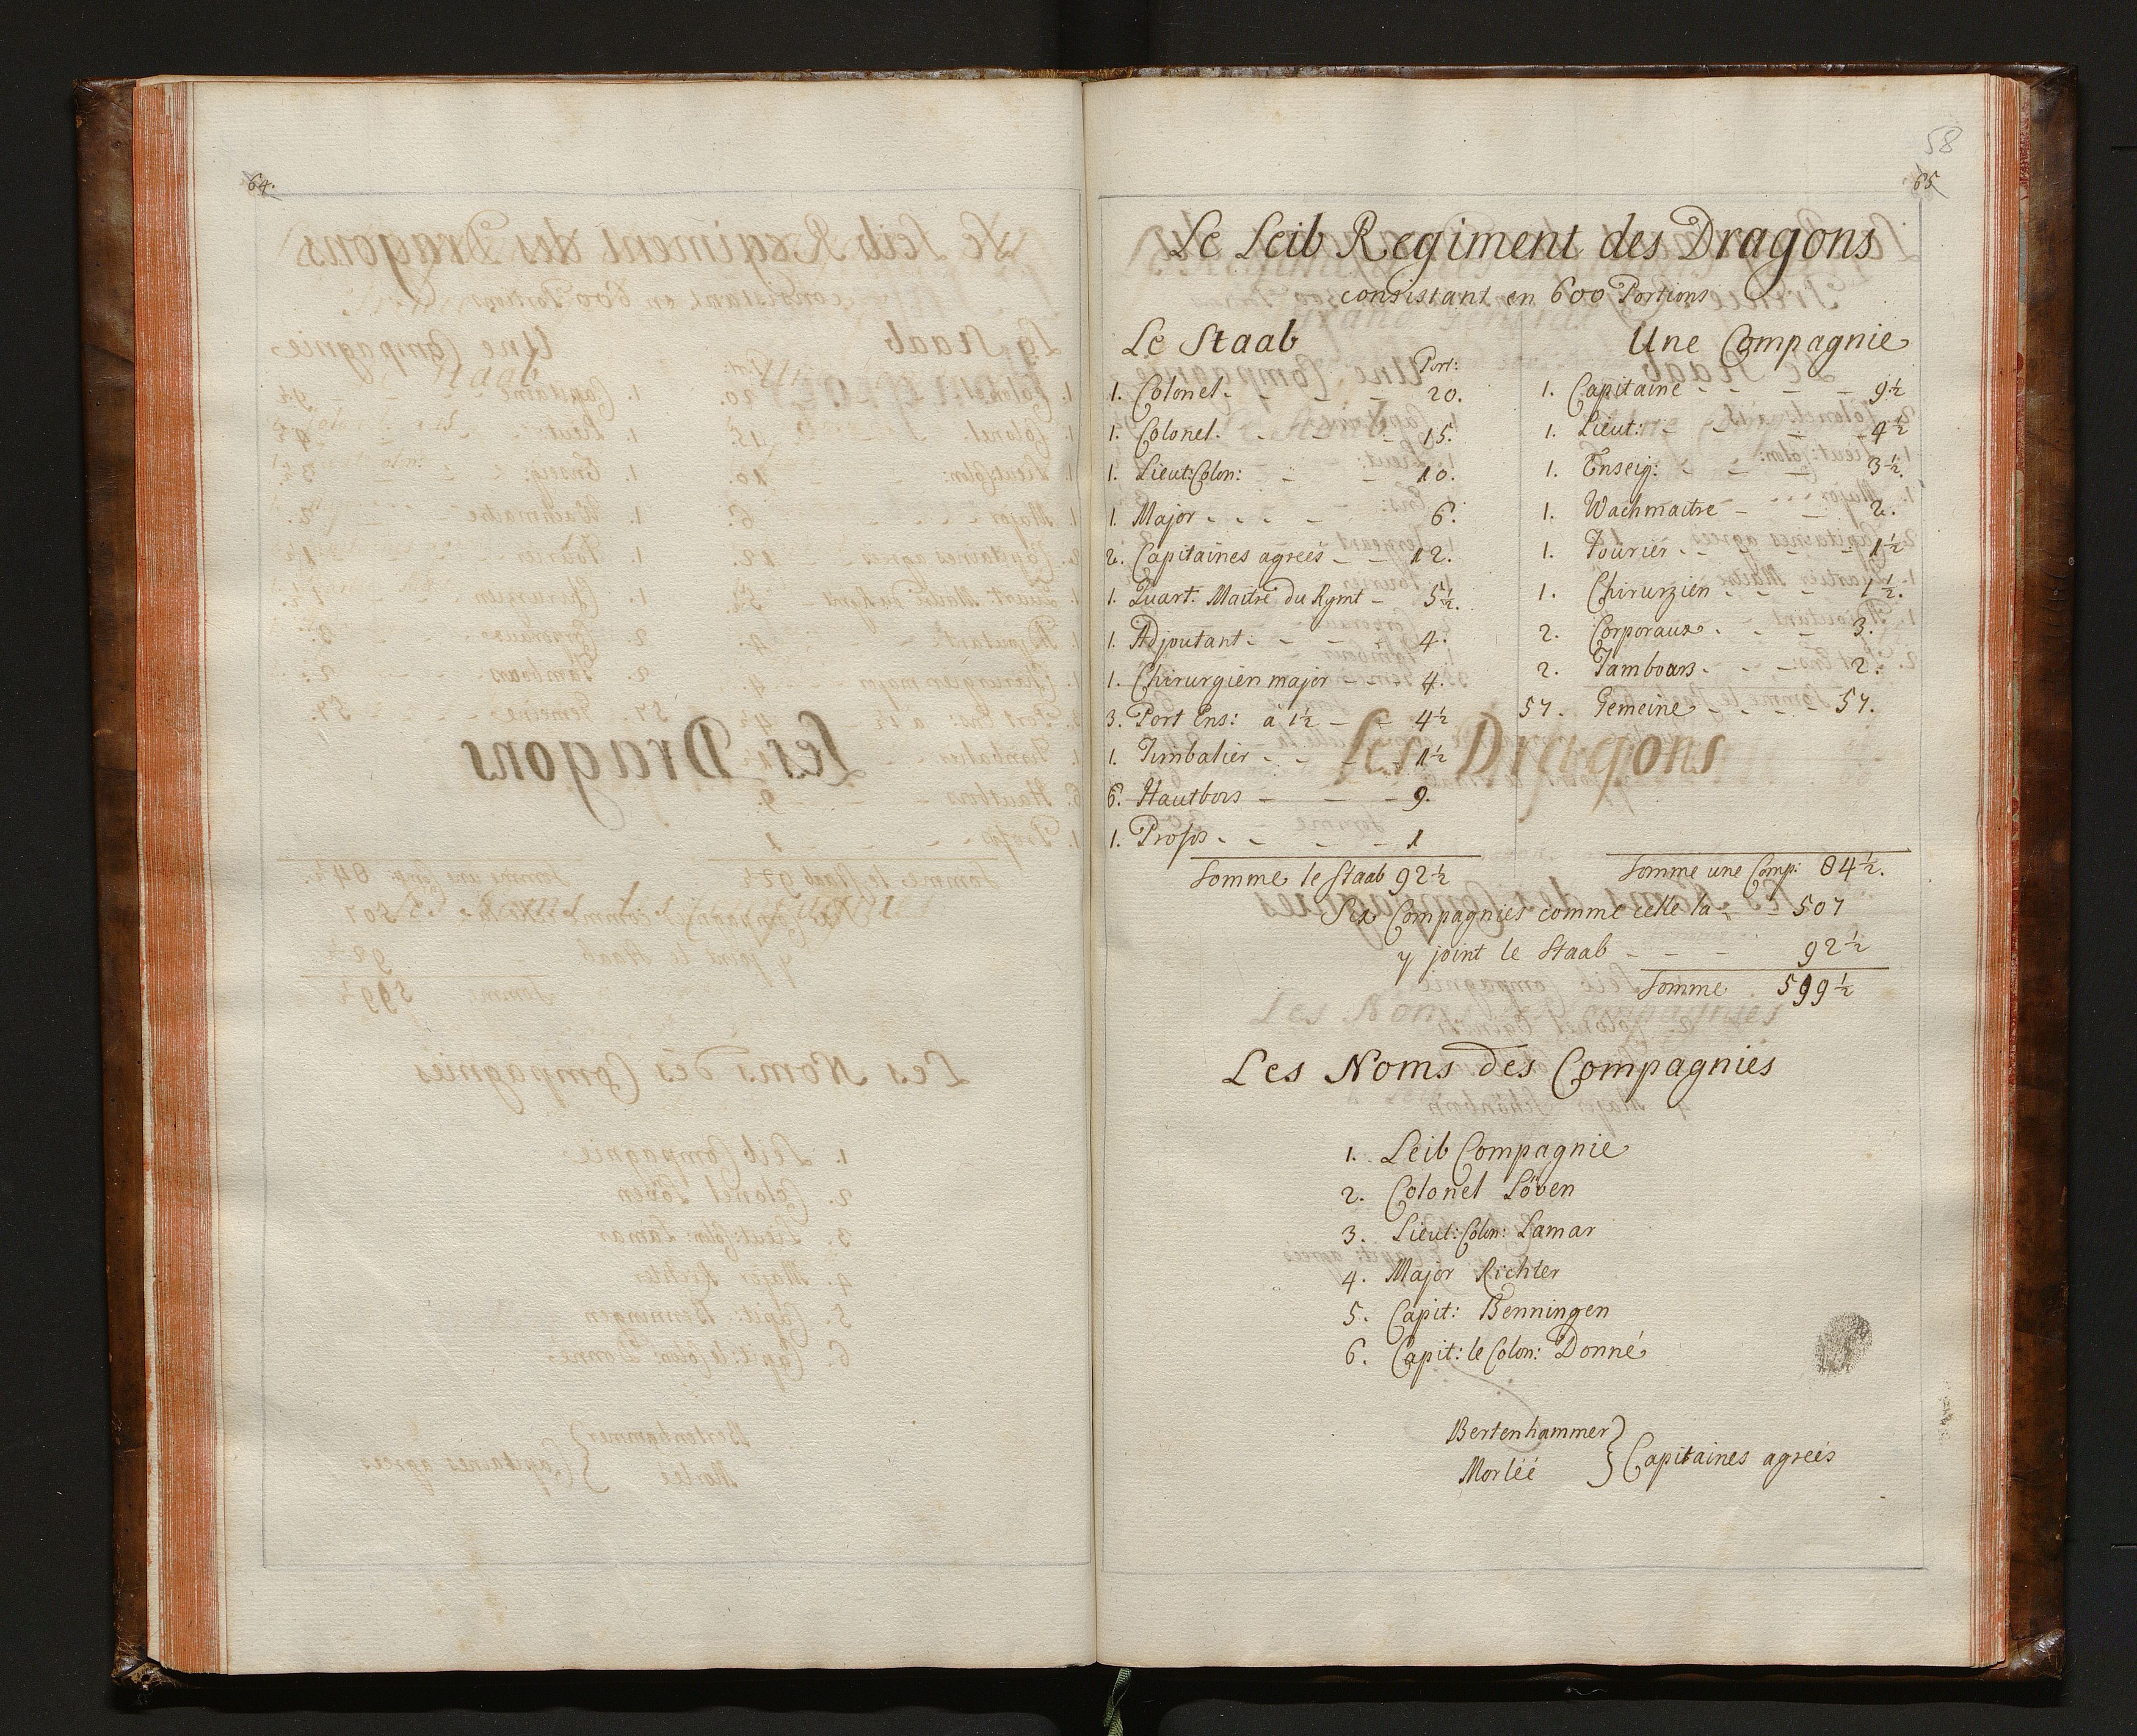 64.
58
65
Le Leib Regiment des Dragons
consistant en 600 Portions
Le Staab
Port:
1. Colonel - - - - 20.
1. Colonel - - - - 15.
1. Lieut: Colon: - - 10.
1. Major - - - - 6.
2. Capitaines agreés - - 12.
1. Quart: Maitre du Rgmt - 5½.
1. Adjoutant - - - - 4.
1. Chirurgien major - - - 4.
3. Port Ens: à 1½ - - 4½
1. Timbalier - - - - 1½
6. Hautbois - - - 9.
1. Profos - - - - 1
Somme le Staab 92½
Une Compagnie
1. Capitaine - - - - 9½
1. Lieut: - - - - 4½
1. Enseig: - - - 3½.
1. Wachmaitre - - 2.
1. Fourier - - - - 1½
1. Chirurgien - - - - 1½.
2. Corporaux - - - 3.
2. Tambours - - - 2.
57. Gemeine - - - - 57.
Somme une Comp: 84½.
Six Compagnies comme celle la - - 507
y joint le Staab - - - 92½
Somme 599½
Les Noms des Compagnies
1. Leib Compagnie
2. Colonel Löven
3. Lieut: Colon: Lamar
4. Major Richter
5. Capit: Benningen
6. Capit: le Colon: Donné
Bertenhammer
Morléé } Capitaines agreés